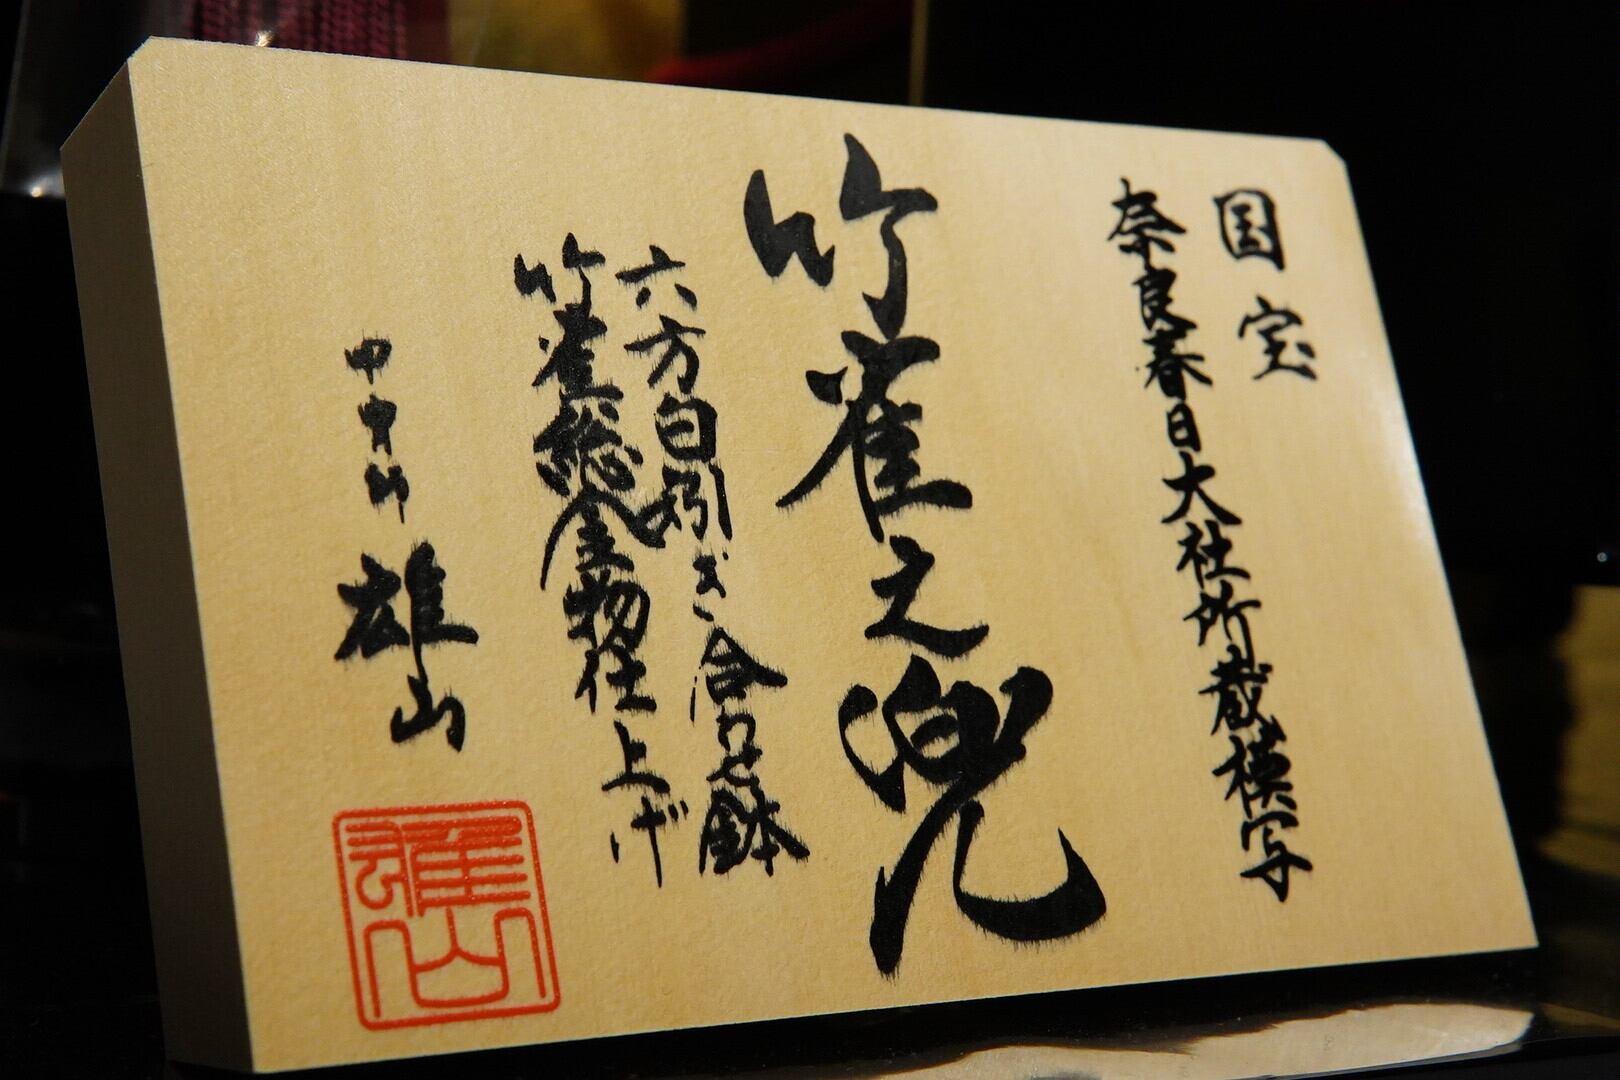 国宝
奈良春日大社所蔵模写
竹雀之兜
六方白引き合わせ鉢
竹雀総金物仕上げ
甲冑師 雄山
雄山